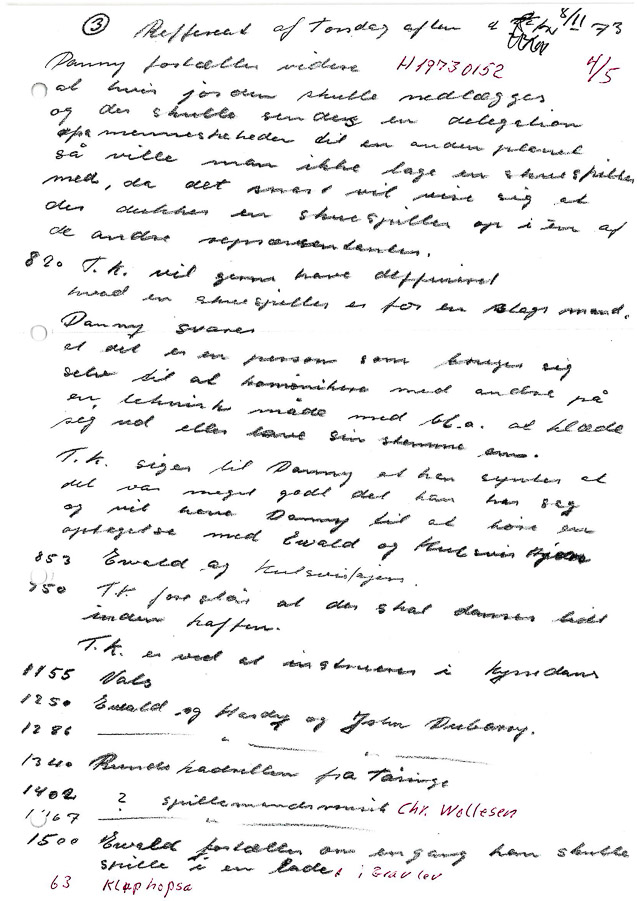 3 Refferat af Torsdag aften d 8/11 73
Danny fortæller videre H19730152 4/5
at hvis jorden skulle nedlægges
og der skulle sendes en delegation
af menneskeheden til en anden planet
så ville man ikke tage en skuespiller
med, da det snart vil vise sig at
der dukker en skuespiller op i en af
de andre repræsentanter.
820 T.K. vil gerne have deffineret
hvad en skuespiller er for en slags mand.
Danny svarer
at det er en person som bruger sig
selv til at komonikere med andre på
en teknisk måde med bl.a. at klæde
sig ud eller lave sin stemme om.
T.K. siger til Danny at han syntes at
det var meget godt det han har sagt
og vil have Danny til at høre en
optagelse med Ewald og Kulsvierhjon
853 Ewald og Kulsvislajen.
950 T.K. foreslår at der skal danses lidt
inden kaffen.
T.K. er ved at instruerer i kyssedans
1155 Vals
1250 Ewald og Hardy og John Dubarry.
1286 — " —
1340 Runde kadrillen fra Tåsinge
1402 ? spillemandsmusik Chr. Wollesen
1467 — " —
1500 Ewald fortæller om engang han skulle
spille i en lade, i Gravlev
63 Klaphopsa